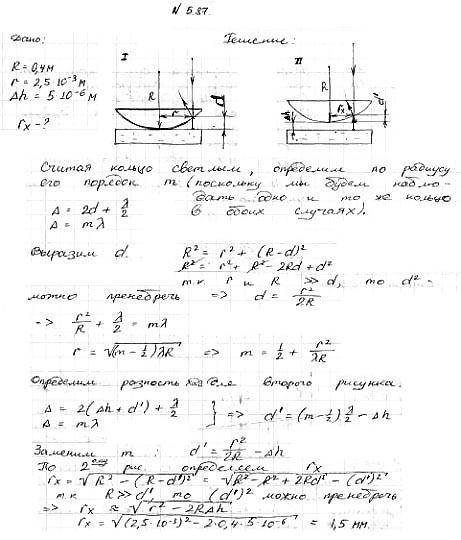 N 5.87.
Дано:
Решение:
R = 0,4м
r = 2,5·10⁻³ м
Δh = 5·10⁻⁶ м
rₓ - ?
I
R
r
d
II
R
rₓ
Δh
d'
Считая кольцо светлым, определим по радиусу
его порядок m (поскольку мы будем наблю-
дать одно и то же кольцо
в обоих случаях).
Δ = 2d + λ/2
Δ = mλ
Выразим d.
R² = r² + (R-d)²
R² = r² + R² - 2Rd + d²
т.к. r и R ≫ d, то d² -
можно пренебречь => d = r²/2R
-> r²/R + λ/2 = mλ
r = √(m - 1/2)λR => m = 1/2 + r²/λR
Определим разность хода для второго рисунка.
Δ = 2(Δh + d') + λ/2
Δ = mλ
} => d' = (m - 1/2) λ/2 - Δh
Заменим m : d' = r²/2R - Δh
По 2 рис. определяем rₓ
rₓ = √R² - (R-d')² = √R² - R² + 2Rd' - (d')²
т.к. R ≫ d', то (d')² можно пренебречь
=> rₓ ≈ √r² - 2RΔh
rₓ = √(2,5·10⁻³)² - 2·0,4·5·10⁻⁶ = 1,5 мм.